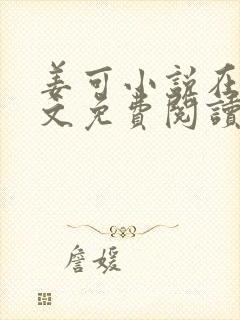 姜可小说在
文免費閱讀
詹媛